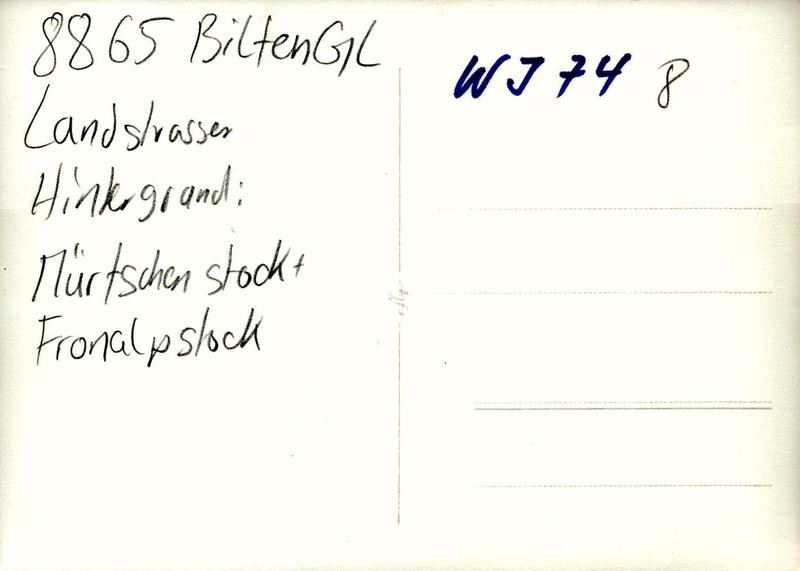 8865 Bilten GL
Landstrasse
Hintergrund:
Mürtschenstock +
Fronalpstock
WJ 74 8